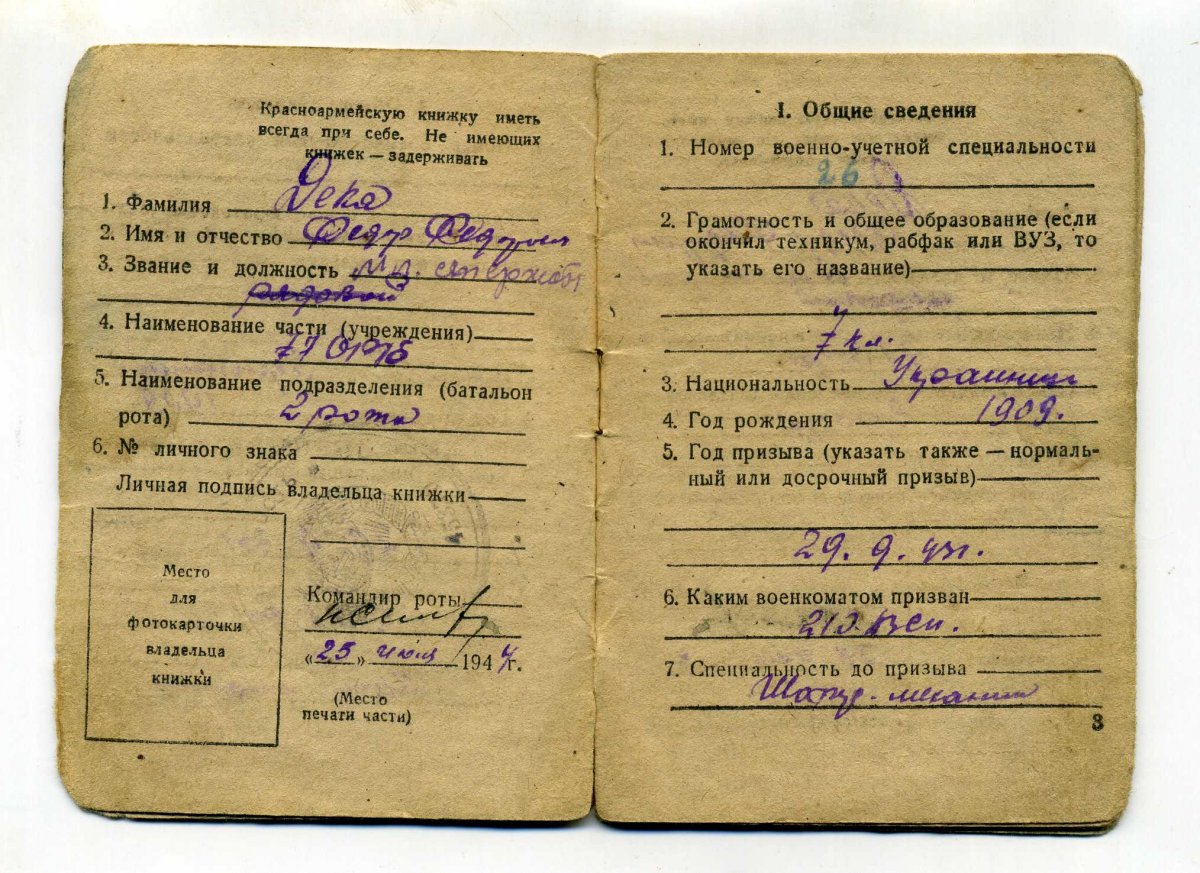 Красноармейскую книжку иметь
всегда при себе. Не имеющих
книжек — задерживать
1. Фамилия Дека
2. Имя и отчество Федор Федорович
3. Звание и должность Мл. сержант
рядовой
4. Наименование части (учреждения)
77
5. Наименование подразделения (батальон
рота) 2 рота
6. № личного знака
Личная подпись владельца книжки
Место
для
фотокарточки
владельца
книжки
Командир роты
«25» июля 1944г.
(Место
печати части)
I. Общие сведения
1. Номер военно-учетной специальности
26
2. Грамотность и общее образование (если
окончил техникум, рабфак или ВУЗ, то
указать его название)
7 кл.
3. Национальность Украинец
4. Год рождения 1909.
5. Год призыва (указать также — нормаль-
ный или досрочный призыв)
29. 9.
6. Каким военкоматом призван
7. Специальность до призыва
механик
3